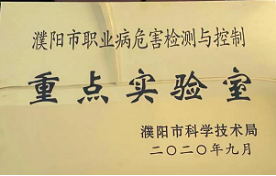 濮阳市职业病危害检测与控制
重点实验室
濮阳市科学技术局
二〇二〇年九月